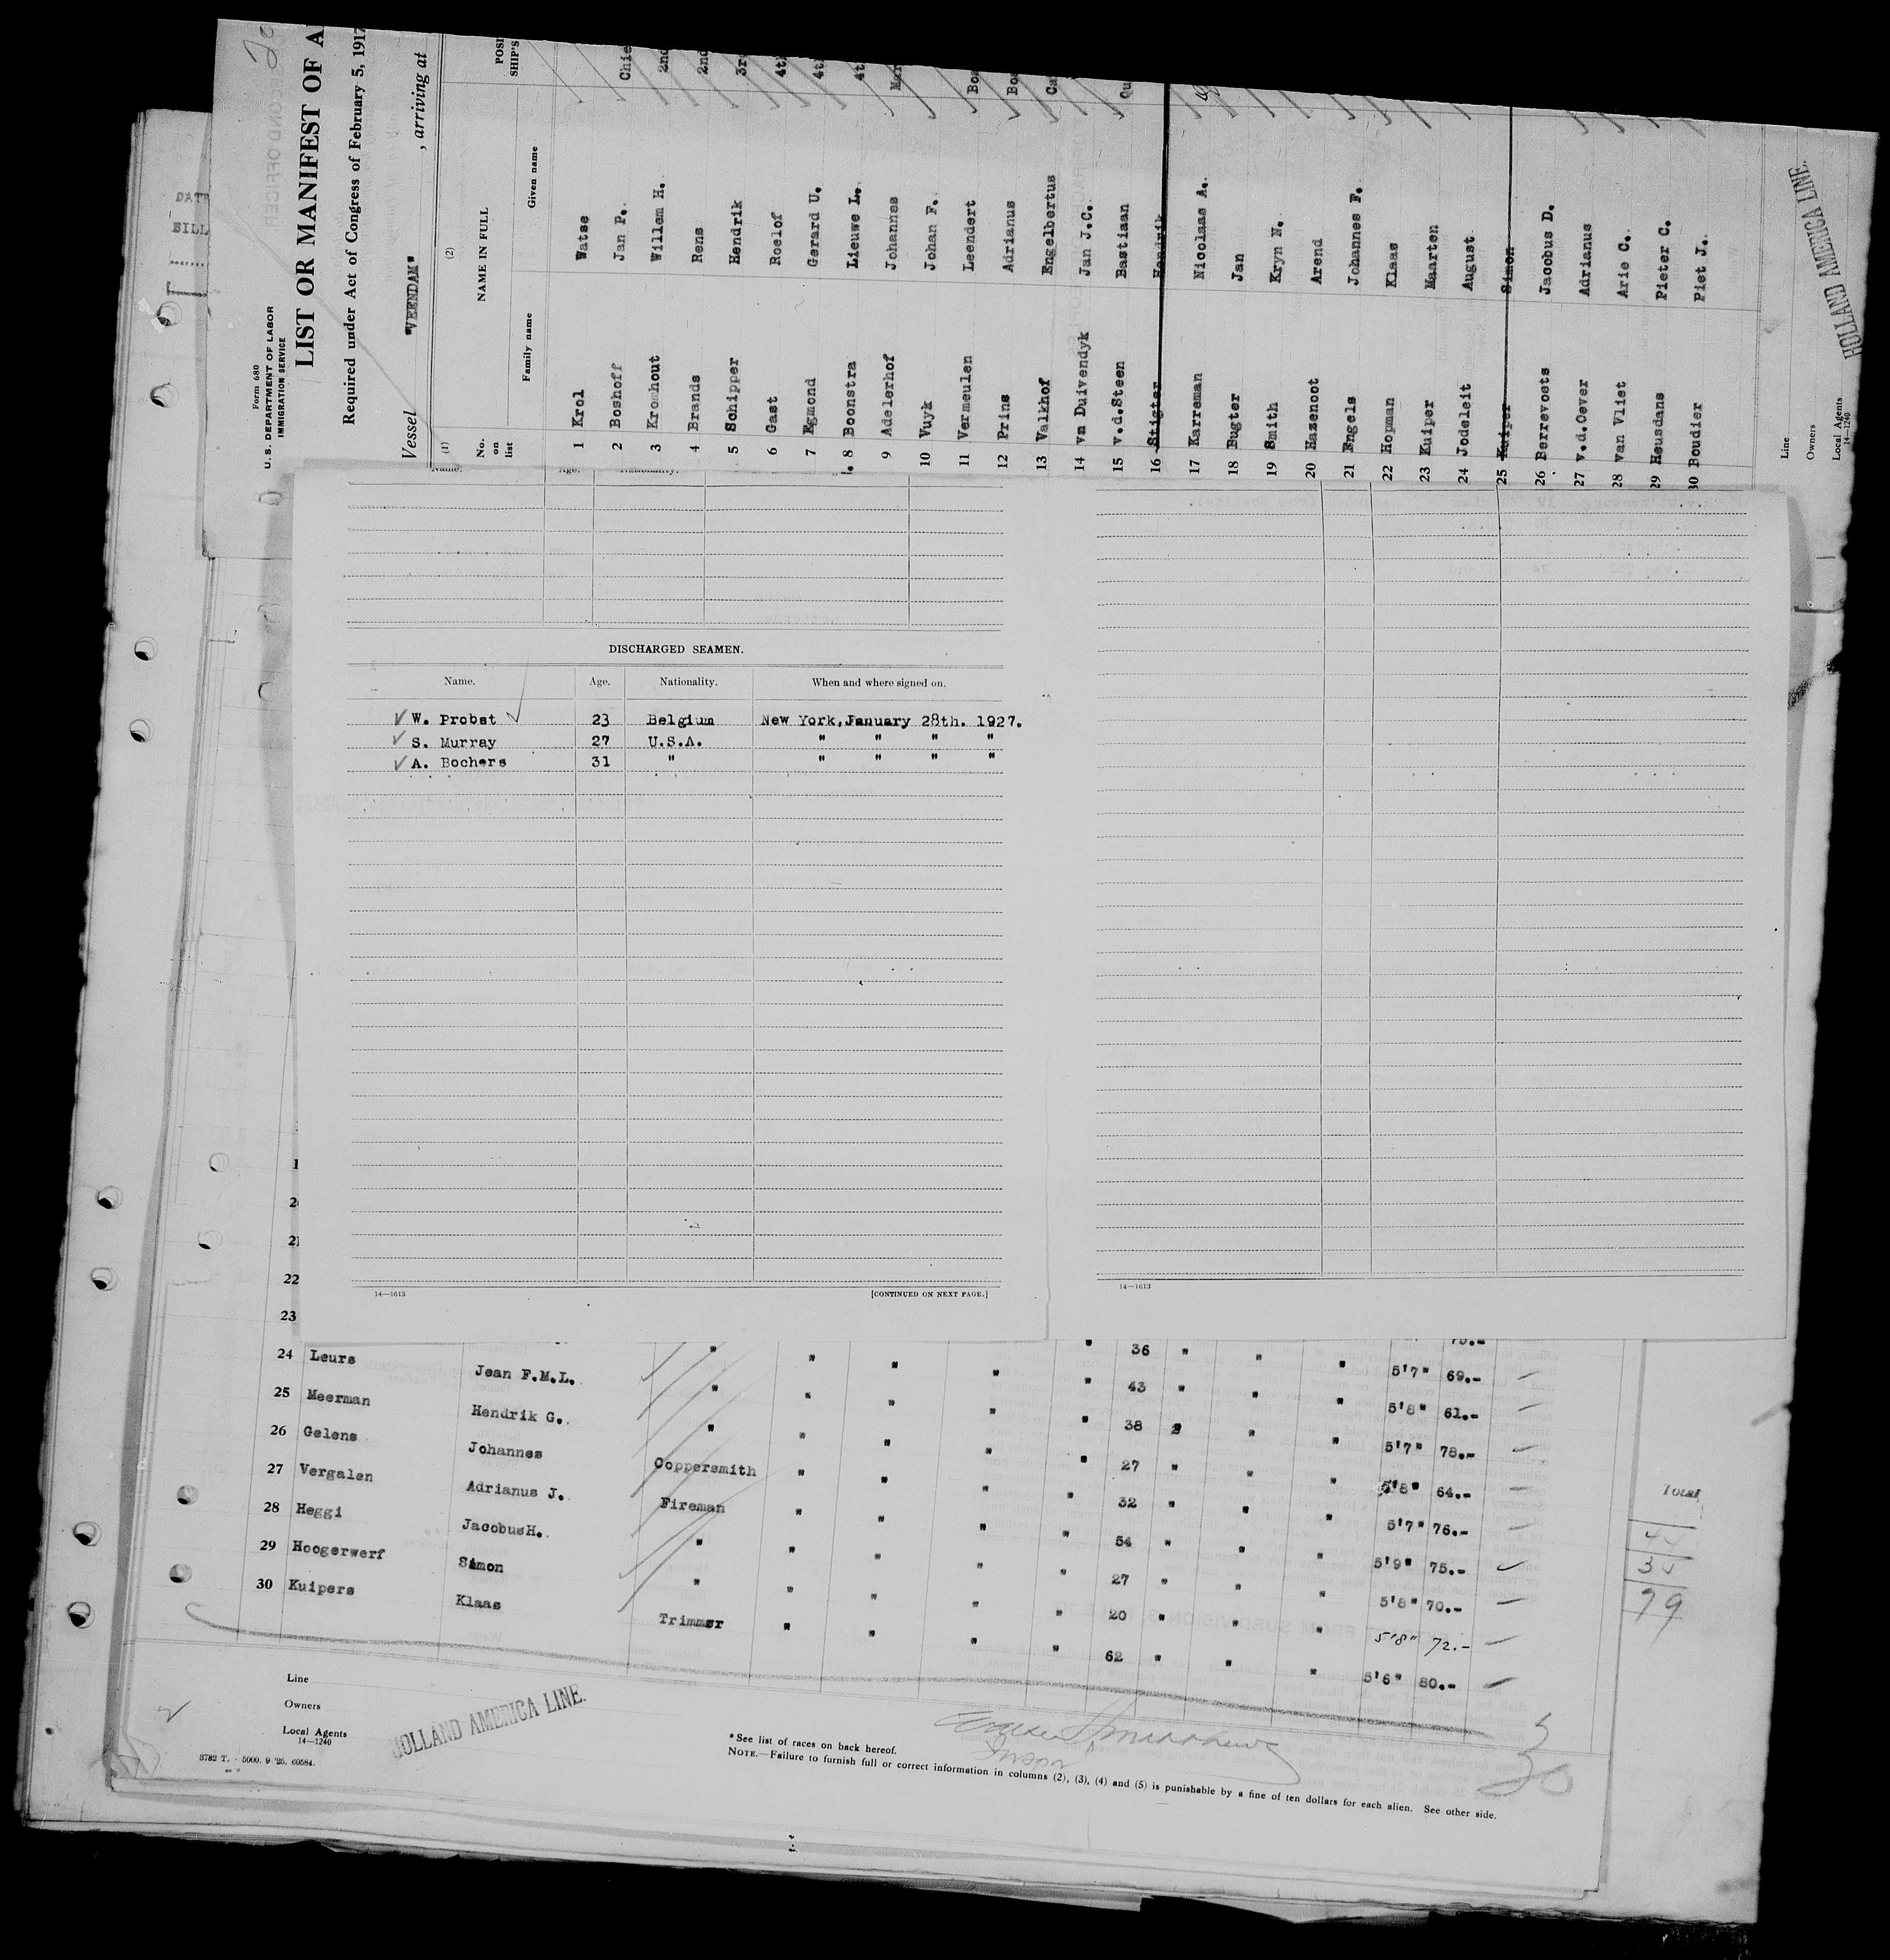 Form 680
U. S. DEPARTMENT OF LABOR
IMMIGRATION SERVICE
LIST OR MANIFEST OF A
Required under Act of Congress of February 5, 1917
Vessel "VEENDAM" , arriving at
(1) (2)
No. on list
NAME IN FULL
Family name Given name
1 Krol Watse
2 Boshoff Jan P. Chie
3 Kromhout Willem H. 2nd
4 Brands Rens 2nd
5 Schipper Hendrik 3r
6 Gast Roelof 4t
7 Egmond Gerard U. 4t
8 Boonstra Lieuwe L. 4t
9 Adelerhof Johannes Mar
10 Vuyk Johan F.
11 Vermeulen Leendert Boa
12 Prins Adrianus Bo
13 Valkhof Engelbertus Ca
14 vn Duivendyk Jan J.C.
15 v.d.Steen Bastiaan Qu
16 Stigter Hendrik
17 Karreman Nicolaas A.
18 Bugter Jan
19 Smith Kryn N.
20 Hazenoot Arend
21 Engels Johannes F.
22 Hopman Klaas
23 Kuiper Maarten
24 Jodeleit August
25 Kuiper Simon
26 Berrevoets Jacobus D.
27 v.d.Oever Adrianus
28 van Vliet Arie C.
29 Heusdans Pieter C.
30 Boudier Piet J.
Line
Owners
Local Agents
14—1240
HOLLAND AMERICA LINE.
DATE
BILL
DISCHARGED SEAMEN.
Name. Age. Nationality. When and where signed on.
W. Probst 23 Belgium New York,January 28th. 1927.
S. Murray 27 U.S.A. " " " "
A. Bochers 31 " " " " "
14—1613 [CONTINUED ON NEXT PAGE.]
14—1613
22
23
24 Leurs Jean F.M.L. " " " " " 36 " " " 5'7" 69.-
25 Meerman Hendrik G. " " " " " 43 " " " 5'8" 61.-
26 Gelens Johannes " " " " " 38 " " 5'7" 78.-
27 Vergalen Adrianus J. Coppersmith " " " " 27 " " " 5'8" 64.-
28 Heggi JacobusH. Fireman " " " " 32 " " " 5'7" 76.-
29 Hoogerwerf Simon " " " " " 54 " " " 5'9" 75.-
30 Kuipers Klaas " " " " " 27 " " " 5'8" 70.-
Trimmer " " " " 20 " " " 5'8" 72.-
62 " " " 5'6" 80.-
Total
34
79
Line
Owners
Local Agents
14—1240
HOLLAND AMERICA LINE.
3782 T. - 5000. 9 '25. 60584.
*See list of races on back hereof.
NOTE.—Failure to furnish full or correct information in columns (2), (3), (4) and (5) is punishable by a fine of ten dollars for each alien. See other side.
30